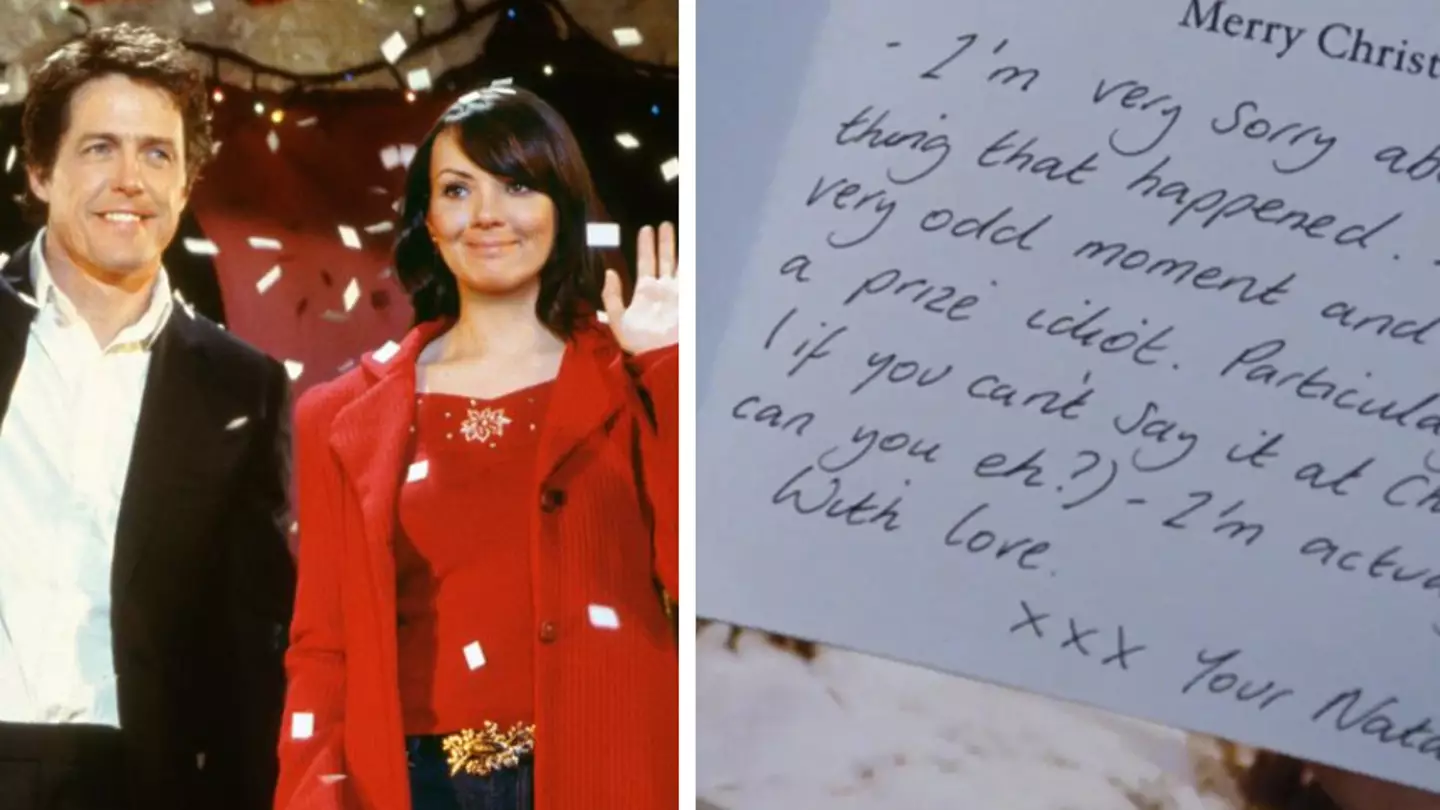 Merry Christ
- I'm very sorry ab
thing that happened.
very odd moment and
a prize idiot. Particula
(if you can't say it at Ch
can you eh?) - I'm actua
With love.
xxx Your Nata